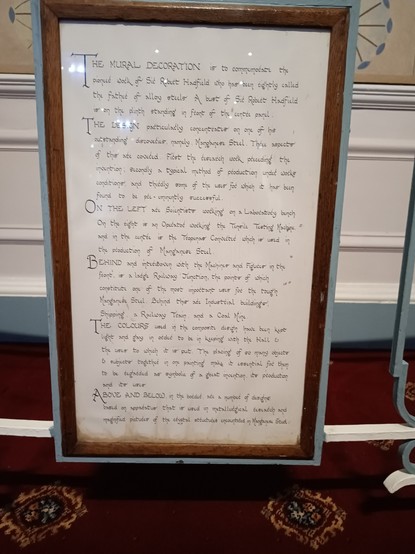 THE MURAL DECORATION is to commemorate the
pioneer work of Sir Robert Hadfield who has been rightly called
the father of alloy steels. A bust of Sir Robert Hadfield
is on the plinth standing in front of the centre panel.
THE DESIGN particularly concentrates on one of his
outstanding discoveries namely Manganese Steel. Three aspects
of this are covered. First the research work preceding the
invention, secondly a typical method of production under works
conditions and thirdly some of the uses for which it has been
found to be pre-eminently successful.
ON THE LEFT are Scientists working on a Laboratory bench
On the right is an Operator working the Tensile Testing Machine
and in the centre is the Tropenas Converter which is used in
the production of Manganese Steel.
BEHIND and interwoven with the Machines and Figures in the
front, is a large Railway Junction, the points of which
constitute one of the most important uses for the tough
Manganese Steel. Behind this are Industrial buildings,
Shipping, a Railway Train and a Coal Mine.
THE COLOURS used in the composite design have been kept
light and gay in order to be in keeping with the Hall &
the uses to which it is put. The placing of so many objects
& subjects together in one painting make it essential for them
to be regarded as symbols of a great invention its production
and its uses.
ABOVE AND BELOW in the border are a number of designs
based on apparatus that is used in metallurgical research and
magnified pictures of the crystal structures encountered in Manganese Steel.